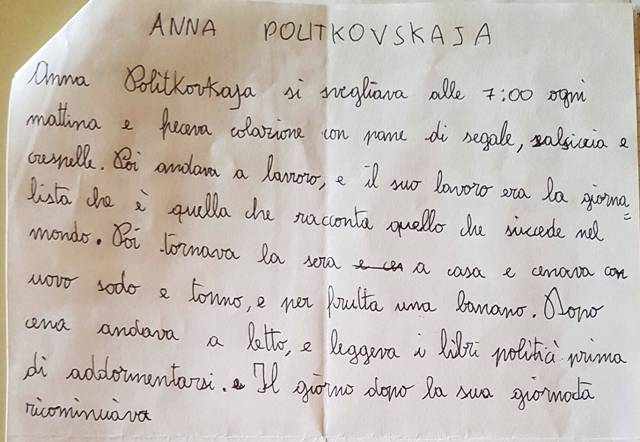 ANNA POLITKOVSKAJA
Anna Politkovkaja si svegliava alle 7:00 ogni
mattina e faceva colazione con pane di segale, salsiccia e
crespelle. Poi andava a lavoro, e il suo lavoro era la giorna=
lista che è quella che racconta quello che succede nel
mondo. Poi tornava la sera e cen a casa e cenava con
uovo sodo e tonno, e per frutta una banano. Dopo
cena andava a letto, e leggeva i libri politici prima
di addormentarsi. e Il giorno dopo la sua giornata
ricominciava